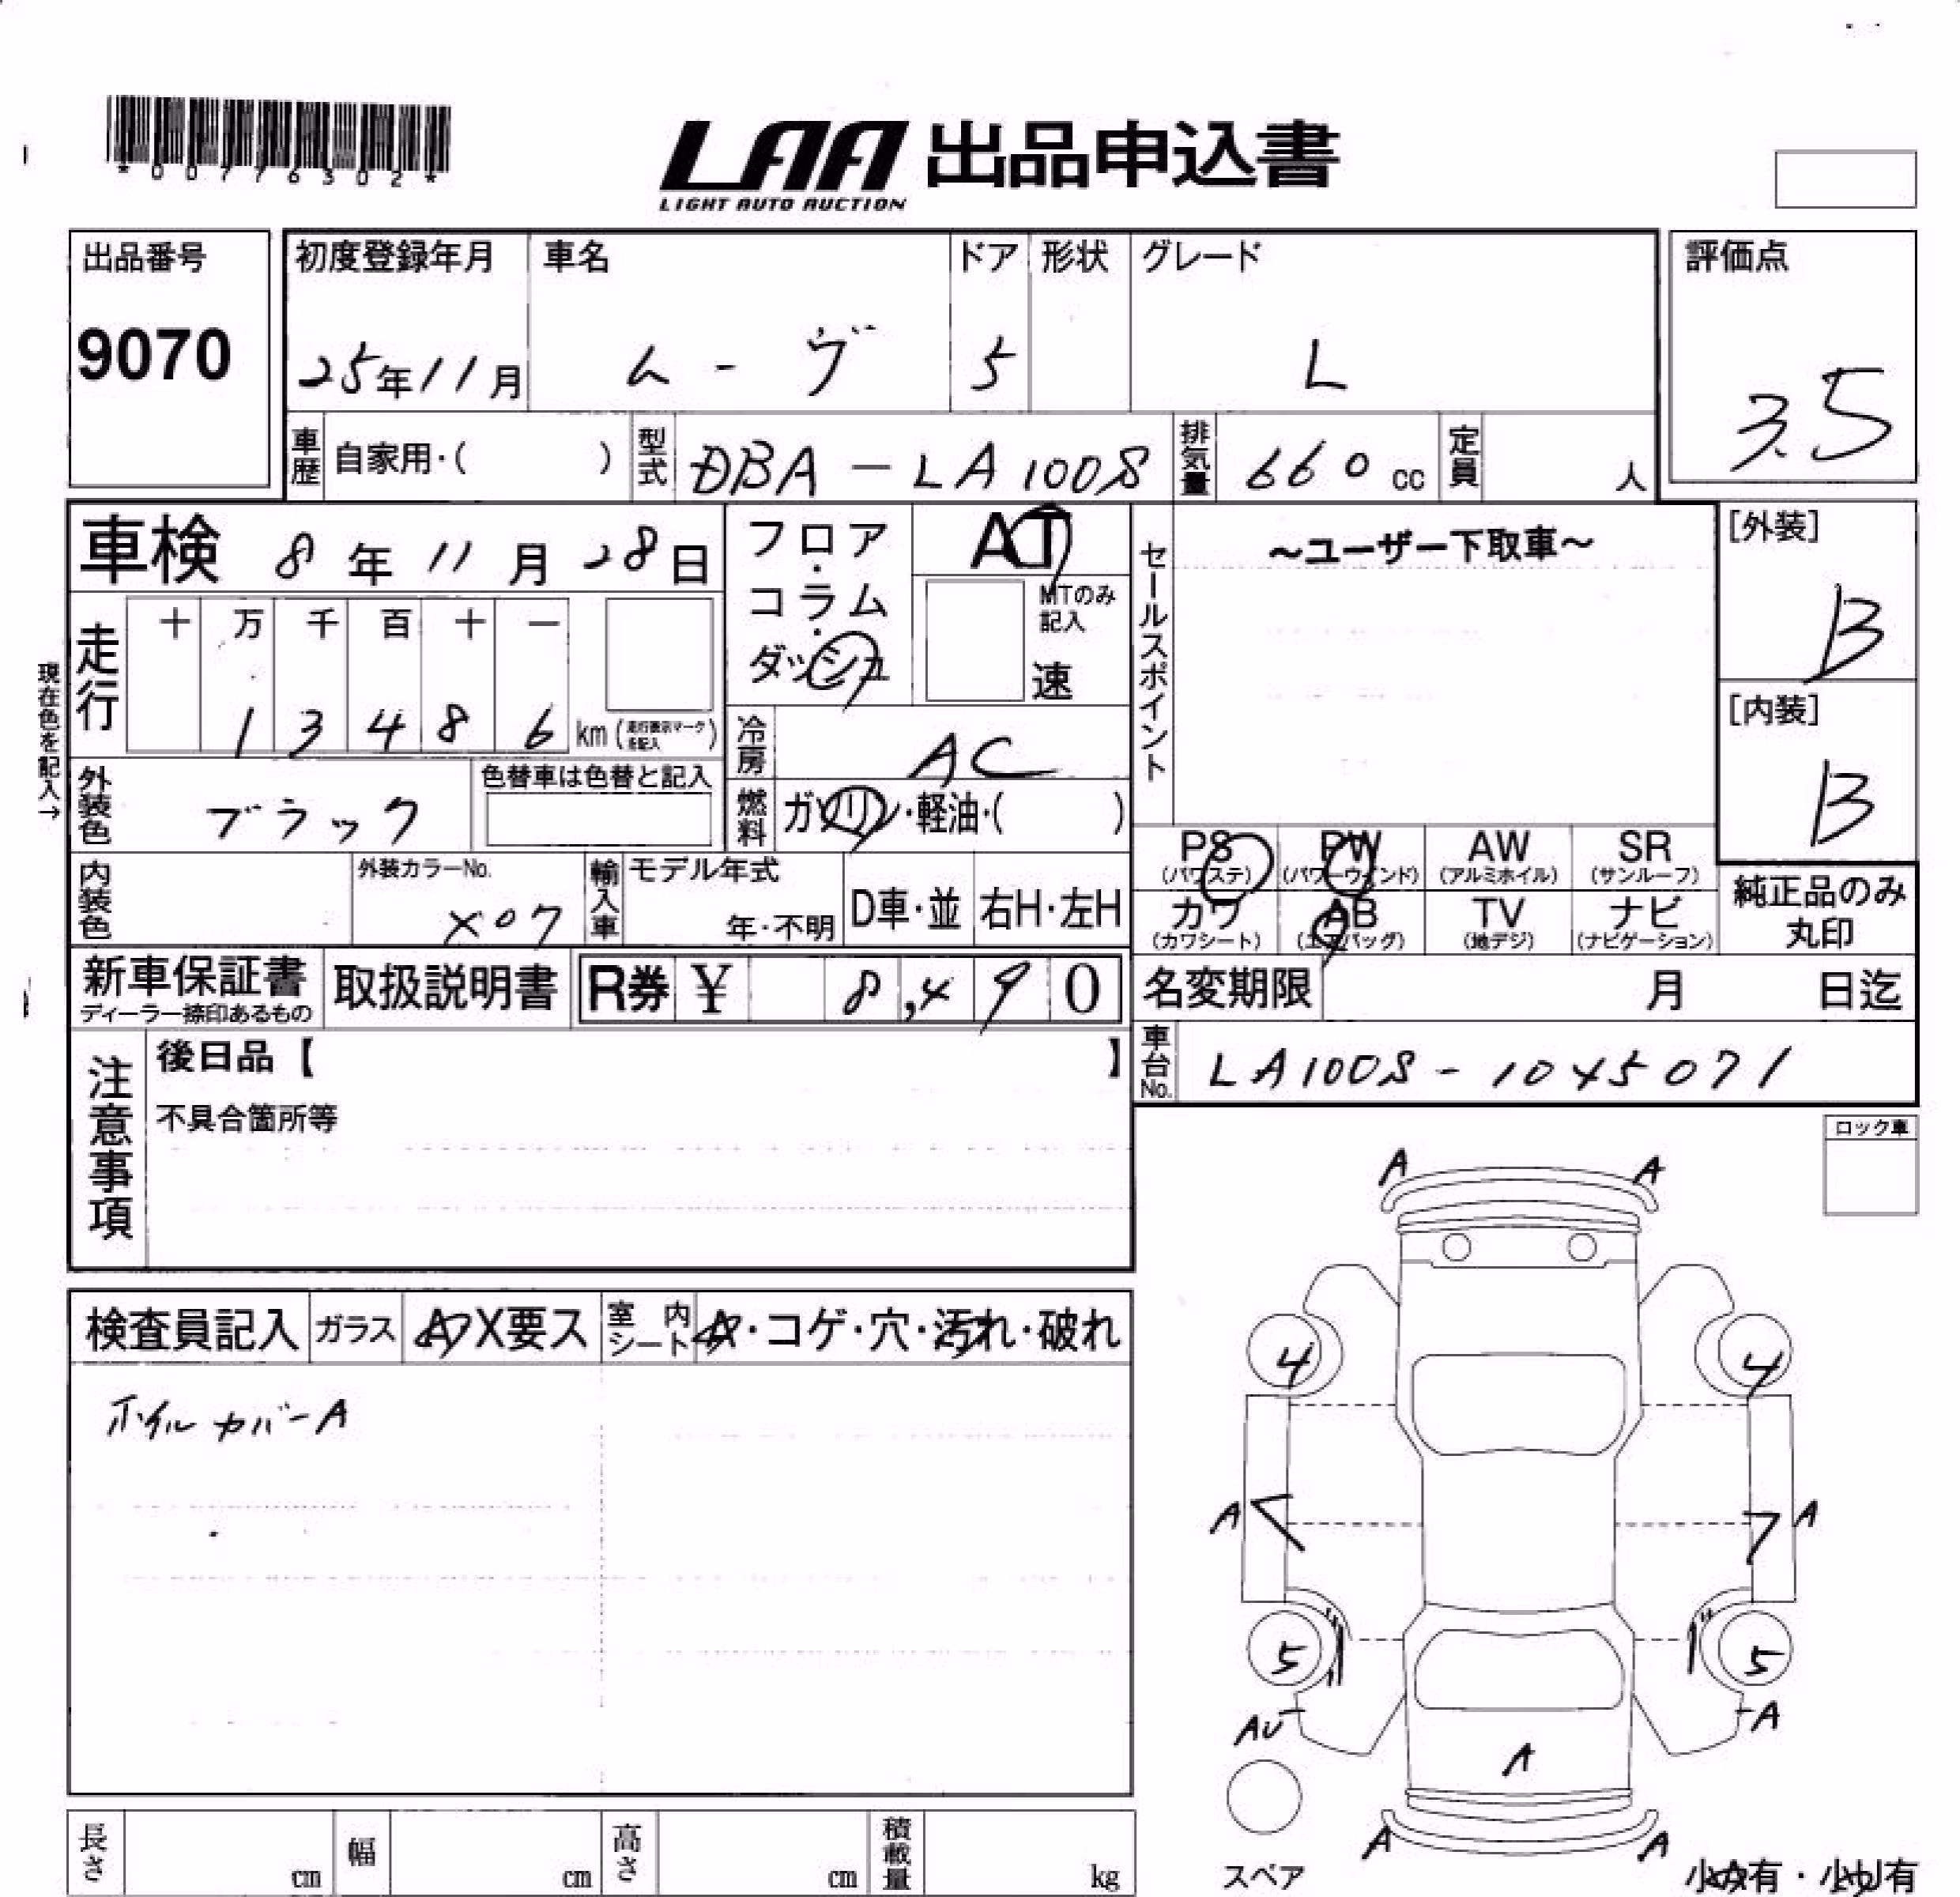 *00776302*
LAA 出品申込書
LIGHT AUTO AUCTION
出品番号 初度登録年月 車名 ドア 形状 グレード 評価点
9070 25年11月 ムーヴ 5 L 3.5
車歴 自家用・( ) 型式 DBA-LA100S 排気量 660cc 定員 人
車検 8年11月28日 フロア・コラム・ダッシュ AT セールスポイント ~ユーザー下取車~ [外装]
B
MTのみ記入 速
現在色を記入→
走行 十 万 千 百 十 一
1 3 4 8 6 km (走行表示マークを記入) 冷房 AC [内装]
B
外装色 ブラック 色替車は色替と記入 燃料 ガソリン・軽油・( )
PS (パワステ) PW (パワーウィンド) AW (アルミホイル) SR (サンルーフ)
内装色 外装カラーNo. X07 輸入車 モデル年式 年・不明 D車・並 右H・左H
カワ (カワシート) AB (エアバッグ) TV (地デジ) ナビ (ナビゲーション) 純正品のみ丸印
新車保証書 ディーラー捺印あるもの 取扱説明書 R券 ¥ 8,490 名変期限 月 日迄
注意事項 後日品【 】 車台No. LA100S-1045071
不具合箇所等
ロック車
A A
検査員記入 ガラス A X要ス 室内シート A・コゲ・穴・汚れ・破れ
4 4
ホイルカバーA
A A
5 5
AU A
A
A A
長さ cm 幅 cm 高さ cm 積載量 kg スペア 小A有・小U有